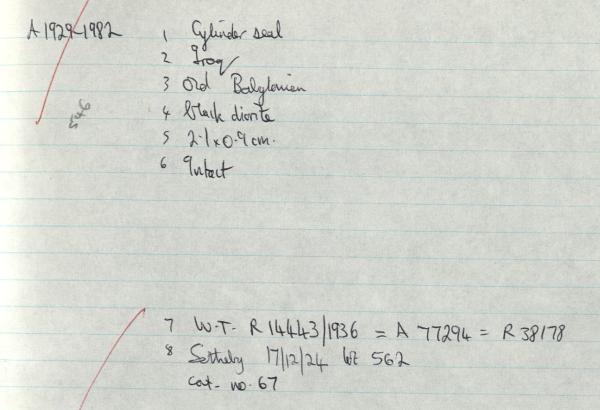 A 1929-1982 1 Cylinder seal
2 Iraq
3 Old Babylonian
546
4 black diorite
5 2.1 x 0.9 cm.
6 Intact
7 W.T. R 14443/1936 = A 77294 = R 38178
8 Sotheby 17/12/24 lot 562
cat. no. 67